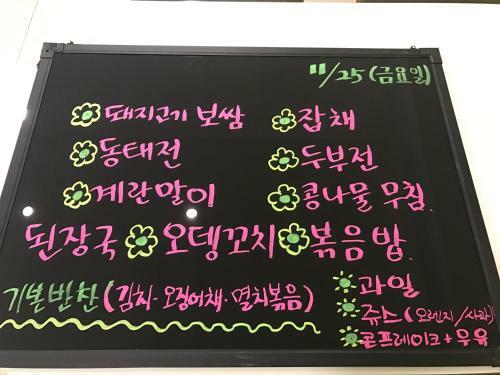 11/25(금요일)
돼지고기 보쌈 잡채
동태전 두부전
계란말이 콩나물 무침.
된장국 오뎅꼬치 볶음밥.
기본반찬(김치·오징어채·멸치볶음) 과일
쥬스(오렌지/사과)
콘프레이크+우유